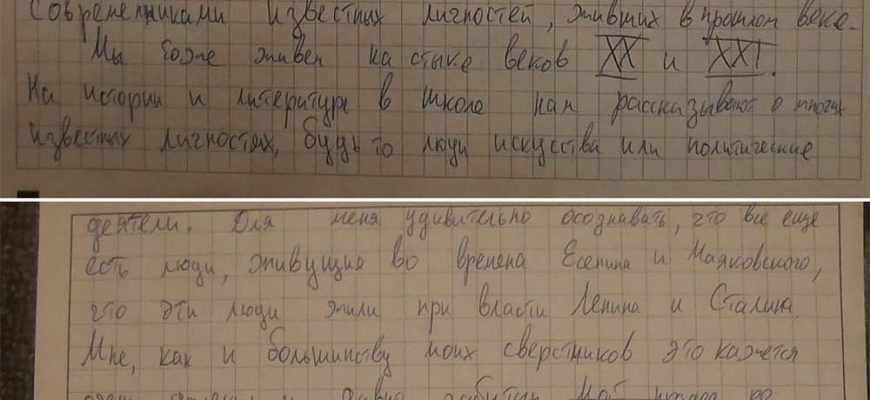 современниками известных личностей, живших в прошлом веке.
Мы тоже живем на стыке веков XX и XXI.
На истории и литературе в школе нам рассказывают о многих
известных личностях, будь то люди искусства или политические
деятели. Для меня удивительно осознавать, что все еще
есть люди, живущие во времена Есенина и Маяковского,
что эти люди жили при власти Ленина и Сталина.
Мне, как и большинству моих сверстников это кажется